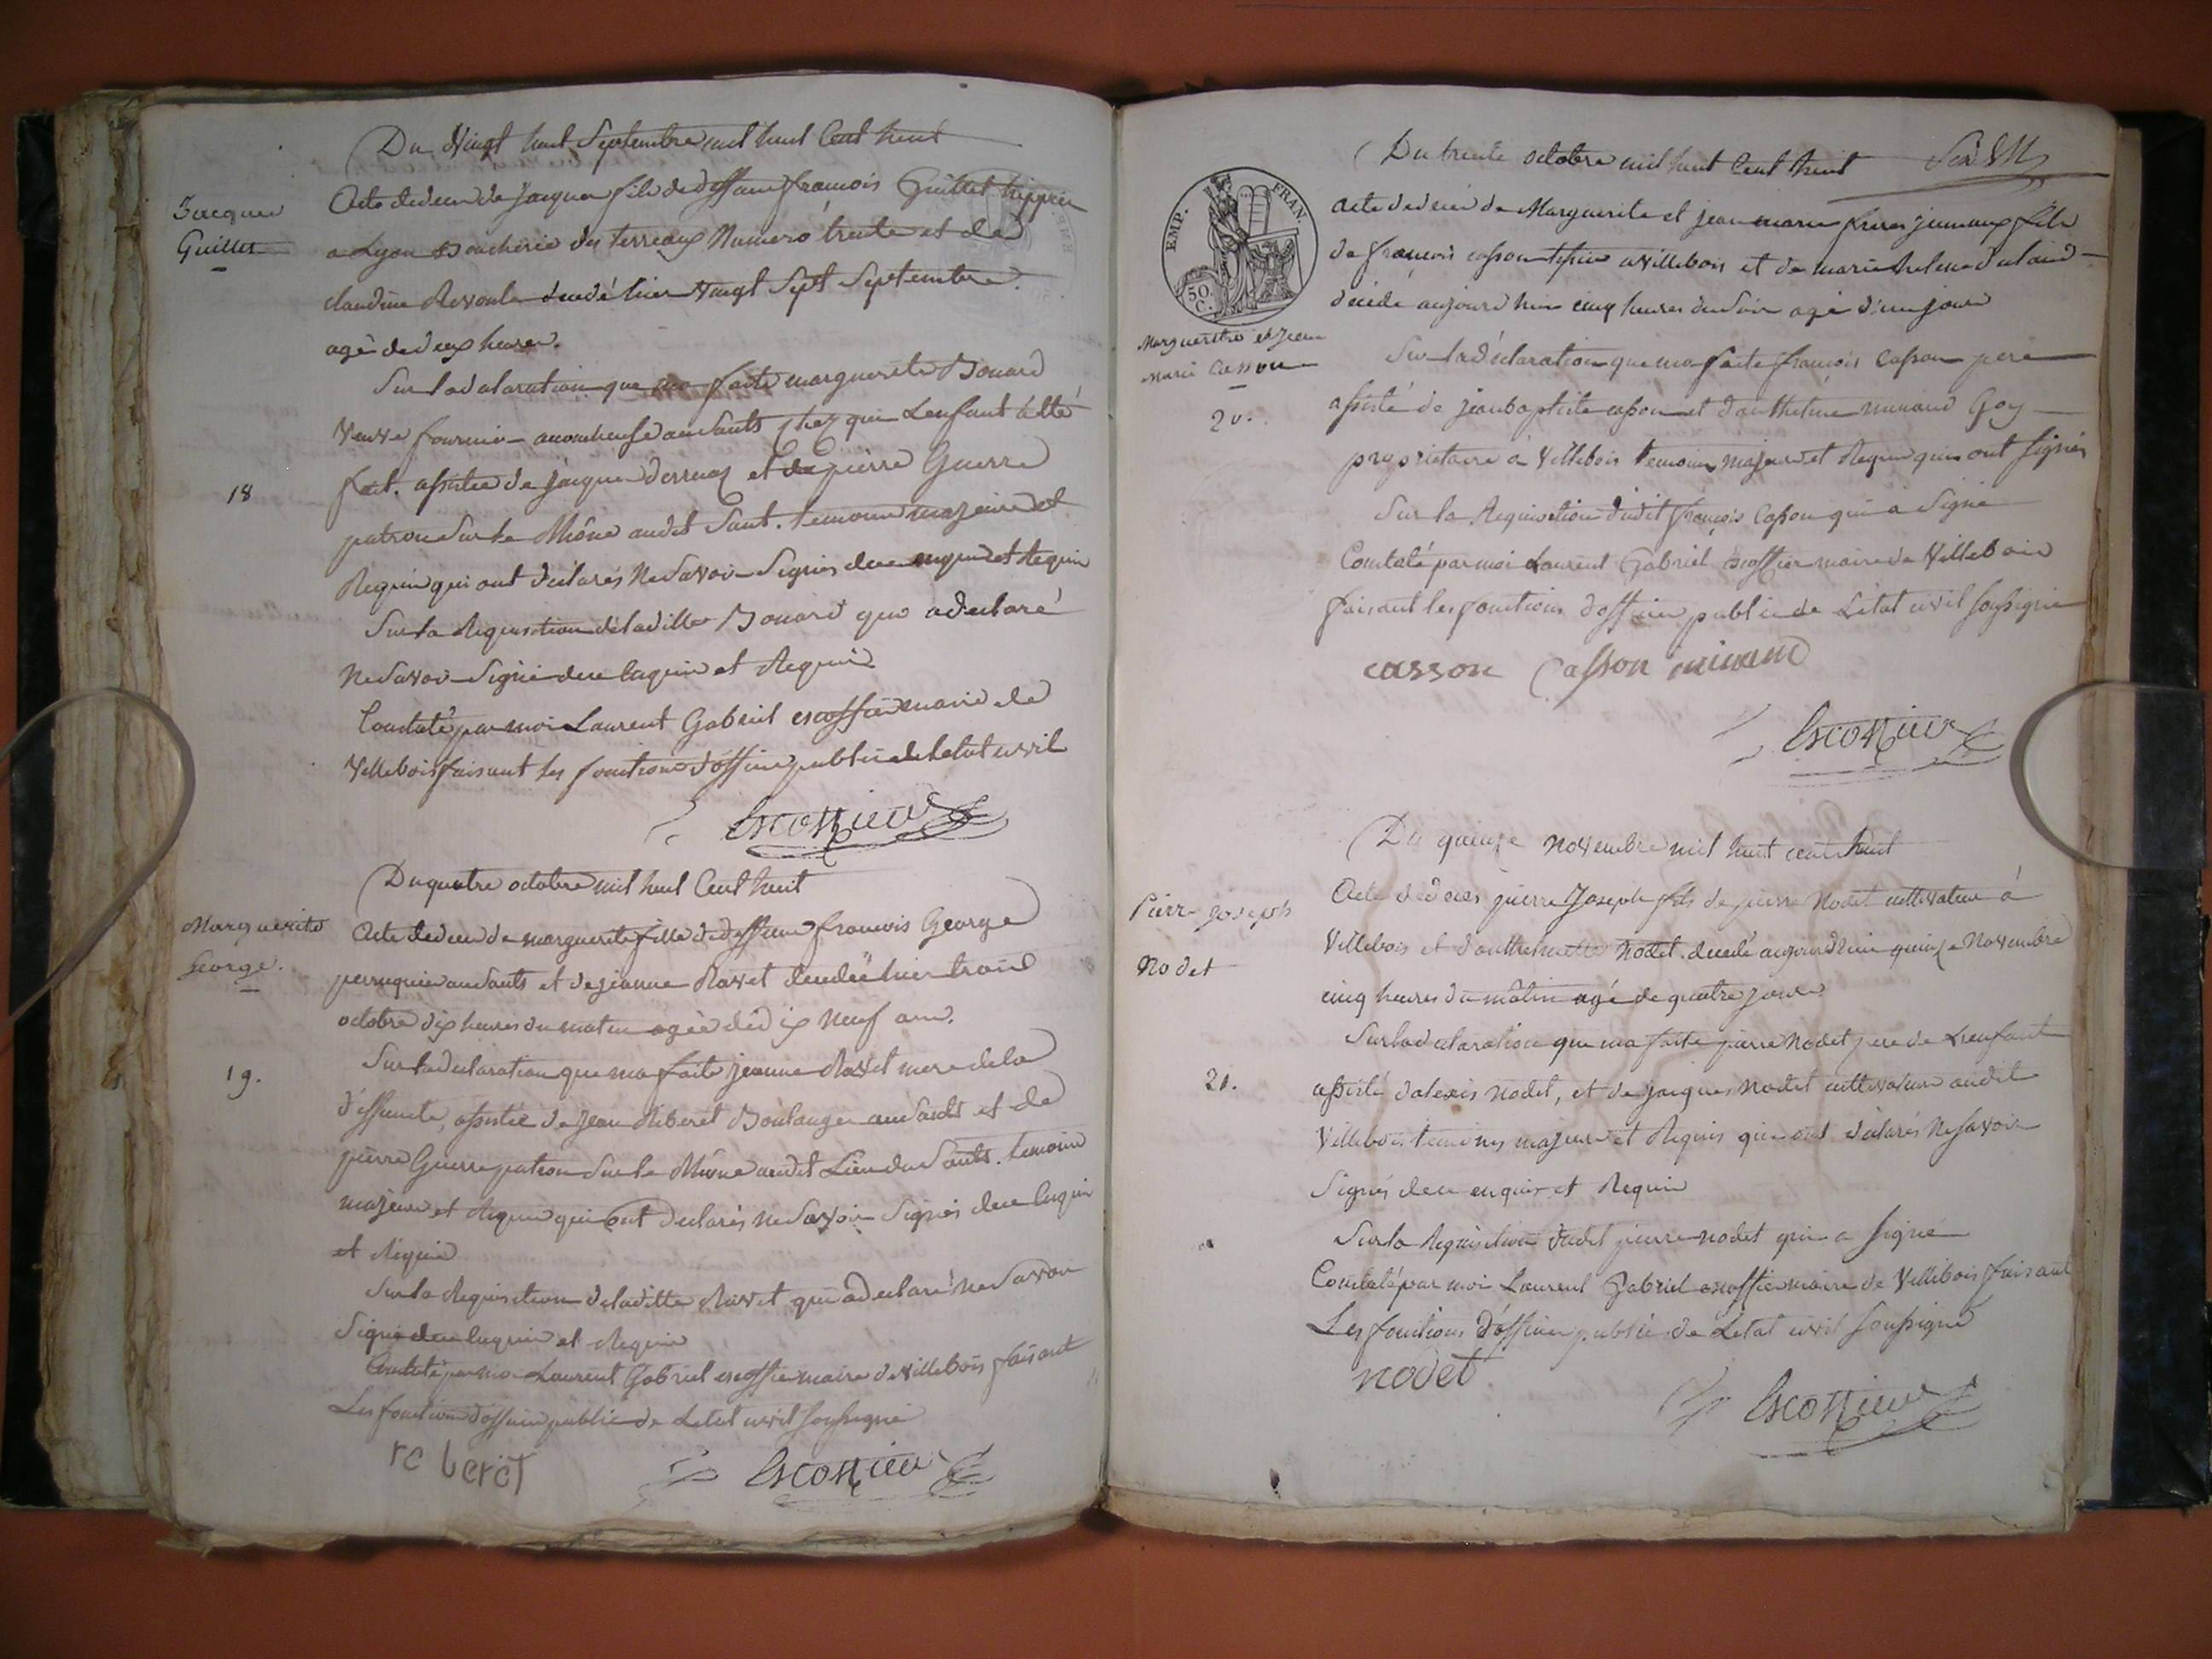 Du Vingt huit Septembre mil huit Cent huit
Jacques
Guillet
Acte de deces de Jacques fils de deffunt françois Guillet trippier
a Lyon Boucherie des terreaux Numero trente et de
claudine Revoule decedé hier vingt Sept Septembre
agé de deux heures.
Sur la declaration que ma faite marguerite Bonard
Veuve fournier accoucheuse au Saults chez qui Lenfant à été
18
fait. assistée de jacques et de pierre Guerre
patrons Sur le Rhône audit Sault. temoins majeurs et
Requis qui ont declarés Ne Savoir Signés de ce enquis et Requis
Sur la Requisition de laditte Bonard qui a declaré
Ne Savoir Signé de ce Enquise et Requise
Constaté par moi Laurent Gabriel escoffier maire de
Villebois faisant les fonctions d'officier public de letat civil
Escoffier
Du quatre octobre mil huit Cent huit
Marguerite
George.
Acte de deces de marguerite fille de deffunt françois George
perruquier au Saults et de jeanne Ravet decedée hier trois
octobre dix heures du matin agée de dix Neuf ans.
19.
Sur la declaration que ma faite jeanne Ravet mere de la
deffuncte, assistée de jean Reberet Boulanger au Saults et de
pierre Guerre patron Sur le Rhône audit Lieu du Saults. temoins
majeurs et Requis qui ont declarés ne Savoir Signés de ce Enquis
et Requis
Sur la Requisition de laditte Ravet qui a declaré ne Savoir
Signé de ce Enquise et Requise
Constaté par moi Laurent Gabriel escoffier maire de Villebois faisant
Les fonctions d'officier public de Letat civil soussigné
re beret
Escoffier
Du trente octobre mil huit Cent huit
EMP. FRAN.
50 C.
acte de deces de Marguerite et jean marie freres jumeaux fils
de françois casson a villebois et de marie
decedé aujourd'hui cinq heures du Soir agé d'un jour
Margueritte et Jean
Marie Casson
20.
Sur la declaration que ma faite françois Casson pere
assisté de jean baptiste casson et d'anthelme minand Goy
proprietaire à Villebois temoins majeurs et Requis qui ont signés
Sur la Requisition dudit françois Casson qui a Signé
Constaté par moi Laurent Gabriel escoffier maire de Villebois
faisant les fonctions d'officier public de Létat civil soussigné
casson Casson minand
Escoffier
Du quinze Novembre mil huit cent huit
Pierre Joseph
Nodet
Acte de décès pierre Joseph fils de pierre Nodet cultivateur à
Villebois et d'anthelmette Nodet. decedé aujourd'hui quinze Novembre
cinq heures du mâtin agé de quatre jours
21.
Sur la declaration que ma faite pierre Nodet pere de L'enfant
assisté d'alexis Nodet, et de jacques Nodet cultivateurs audit
Villebois temoins majeurs et Requis qui ont declarés Ne Savoir
Signés de ce enquis et Requis
Sur la Requisition dudit pierre nodet qui a signé
Constaté par moi Laurent Gabriel escoffier maire de Villebois faisant
Les fonctions d'officier public de Letat civil soussigné
nodet
Escoffier